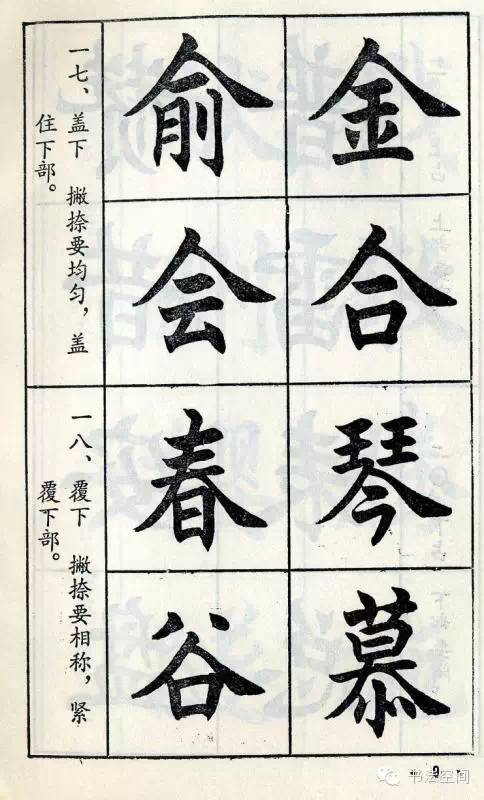 金
合
琴
慕
俞
会
春
谷
一七、盖下 撇捺要均匀，盖
住下部。
一八、覆下 撇捺要相称，紧
覆下部。
· 9 ·
书法空间